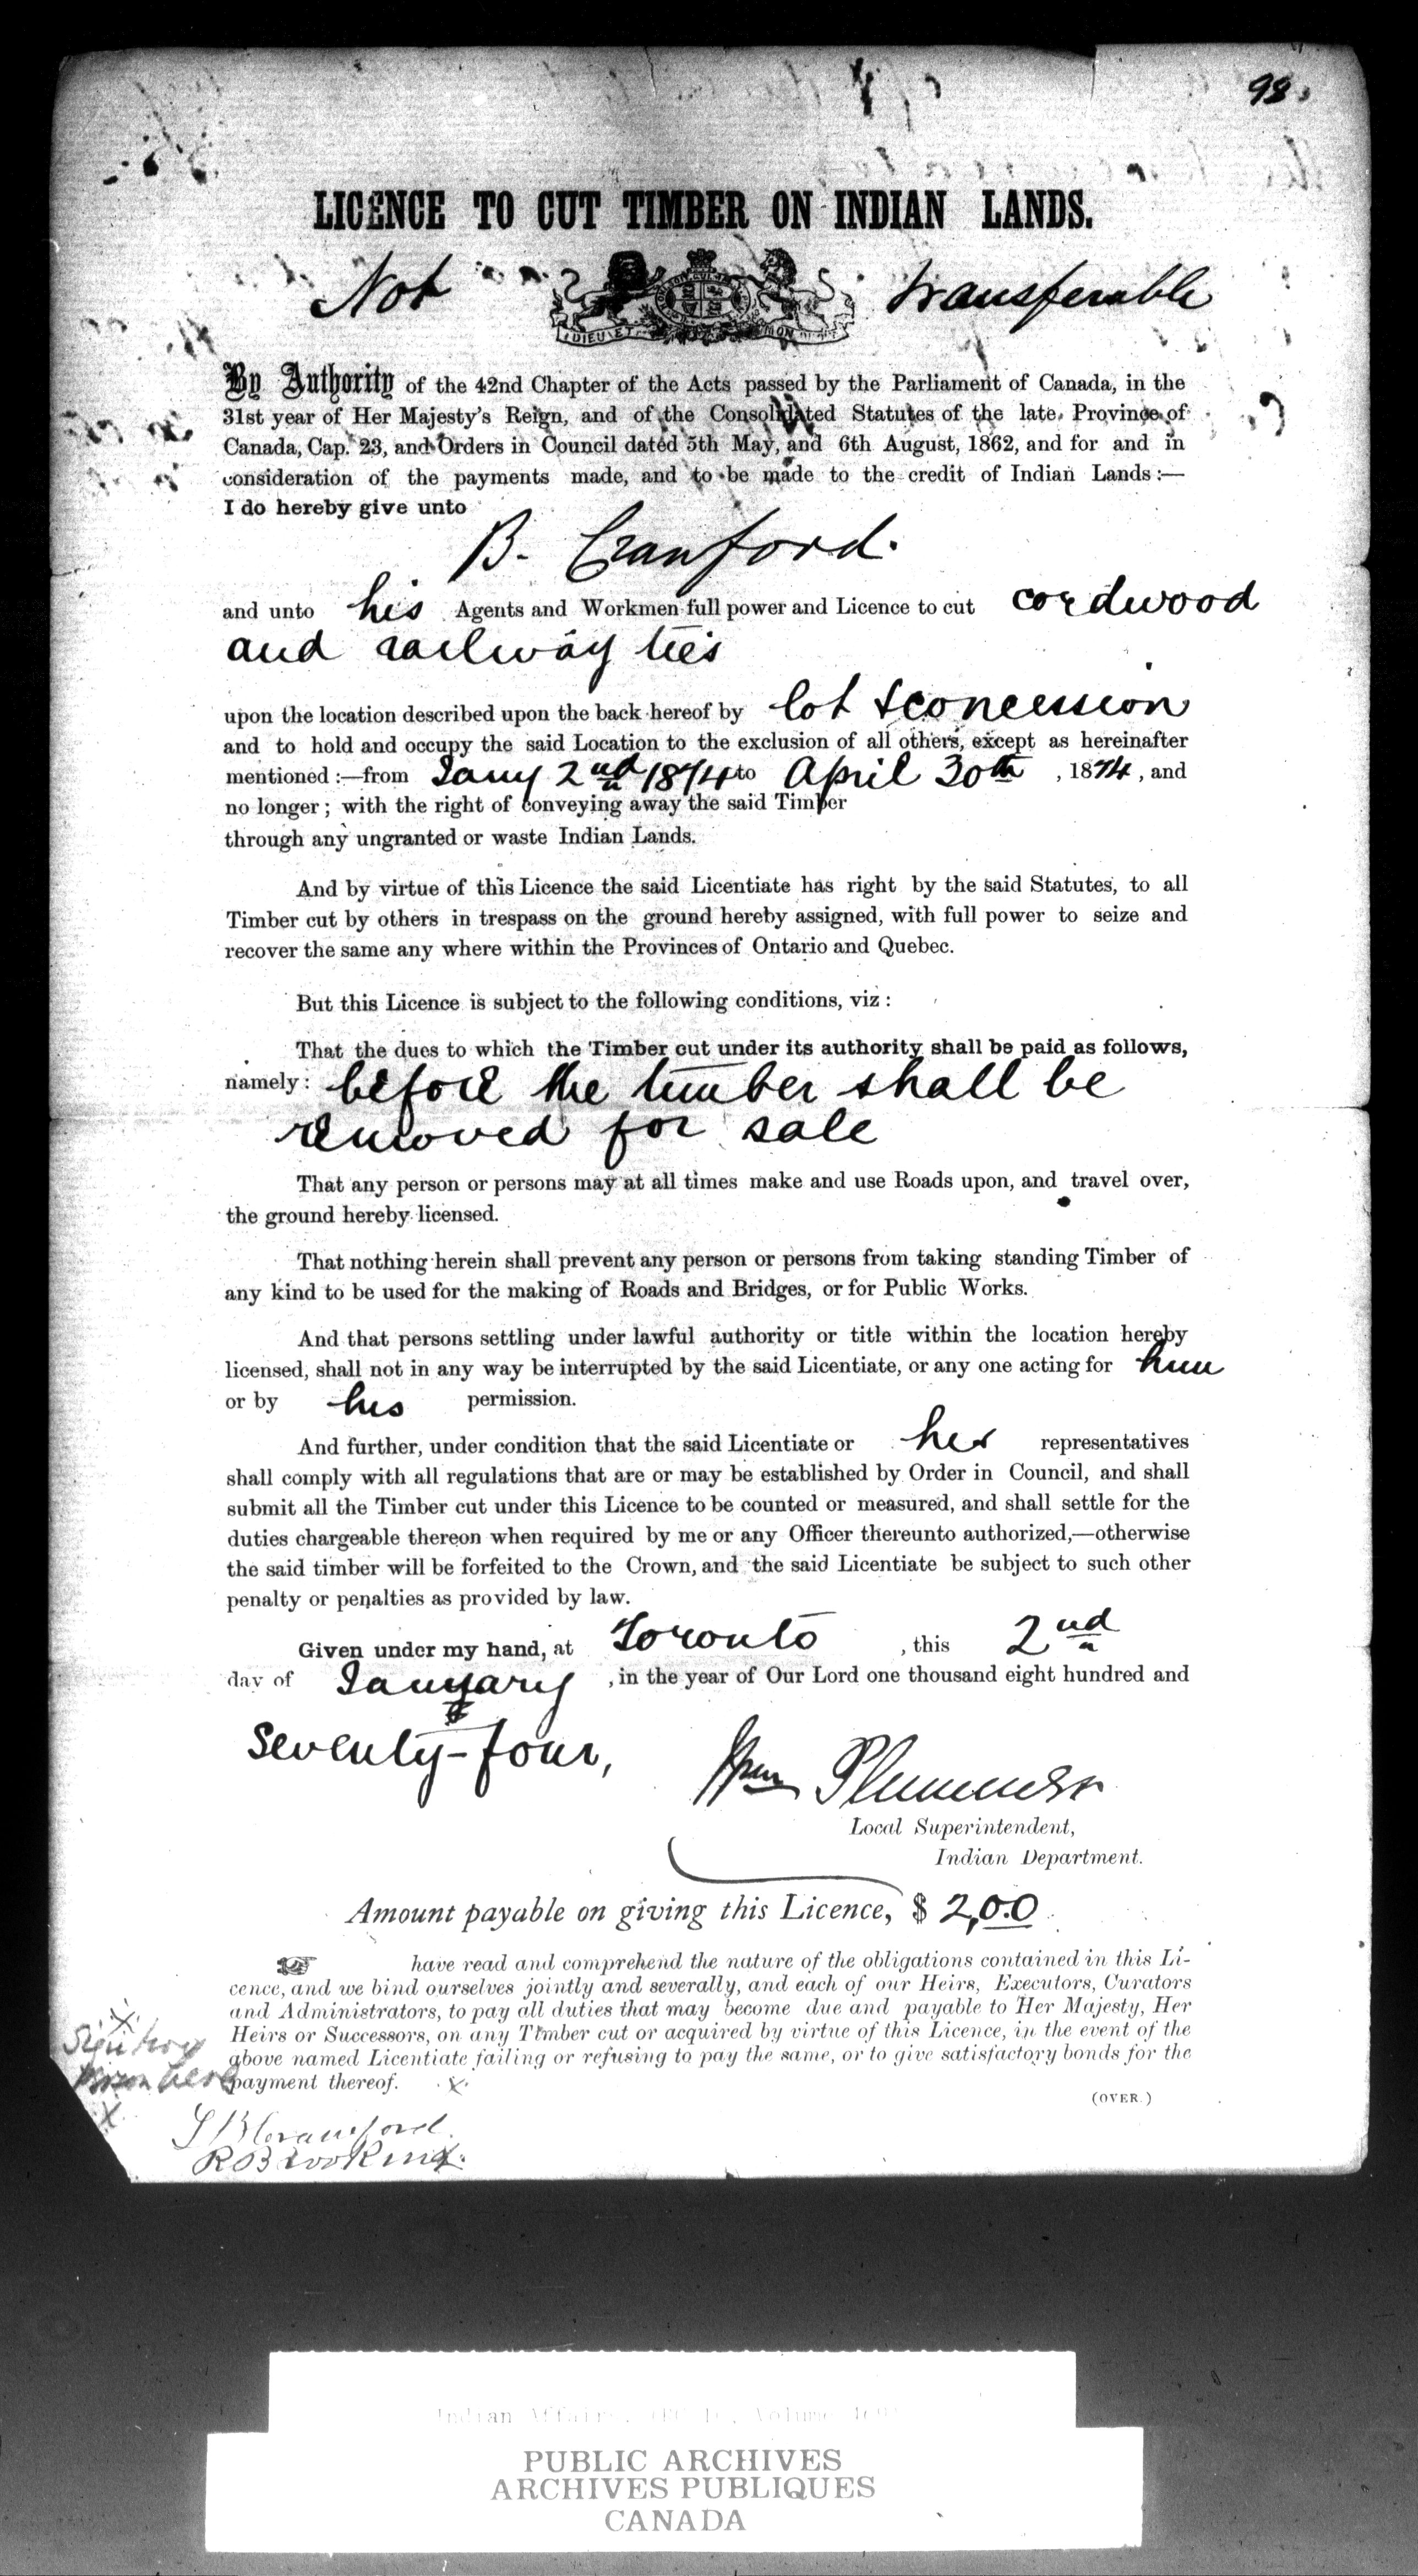 98
LICENCE TO CUT TIMBER ON INDIAN LANDS.
Not transferable
DIEU ET MON
By Authority of the 42nd Chapter of the Acts passed by the Parliament of Canada, in the
31st year of Her Majesty's Reign, and of the Consolidated Statutes of the late Province of
Canada, Cap. 23, and Orders in Council dated 5th May, and 6th August, 1862, and for and in
consideration of the payments made, and to be made to the credit of Indian Lands :—
I do hereby give unto
B. Cranford.
and unto his Agents and Workmen full power and Licence to cut cordwood
and railway ties
upon the location described upon the back hereof by lot & concession
and to hold and occupy the said Location to the exclusion of all others, except as hereinafter
mentioned :—from Jany 2nd 1874 to April 30th , 1874 , and
no longer ; with the right of conveying away the said Timber
through any ungranted or waste Indian Lands.
And by virtue of this Licence the said Licentiate has right by the said Statutes, to all
Timber cut by others in trespass on the ground hereby assigned, with full power to seize and
recover the same any where within the Provinces of Ontario and Quebec.
But this Licence is subject to the following conditions, viz :
That the dues to which the Timber cut under its authority shall be paid as follows,
namely : before the timber shall be
removed for sale
That any person or persons may at all times make and use Roads upon, and travel over,
the ground hereby licensed.
That nothing herein shall prevent any person or persons from taking standing Timber of
any kind to be used for the making of Roads and Bridges, or for Public Works.
And that persons settling under lawful authority or title within the location hereby
licensed, shall not in any way be interrupted by the said Licentiate, or any one acting for him
or by his permission.
And further, under condition that the said Licentiate or his representatives
shall comply with all regulations that are or may be established by Order in Council, and shall
submit all the Timber cut under this Licence to be counted or measured, and shall settle for the
duties chargeable thereon when required by me or any Officer thereunto authorized,—otherwise
the said timber will be forfeited to the Crown, and the said Licentiate be subject to such other
penalty or penalties as provided by law.
Given under my hand, at Toronto , this 2nd
day of January , in the year of Our Lord one thousand eight hundred and
Seventy-four,
Wm Plummer
Local Superintendent,
Indian Department.
Amount payable on giving this Licence, $ 2,00
have read and comprehend the nature of the obligations contained in this Li-
cence, and we bind ourselves jointly and severally, and each of our Heirs, Executors, Curators
and Administrators, to pay all duties that may become due and payable to Her Majesty, Her
Heirs or Successors, on any Timber cut or acquired by virtue of this Licence, in the event of the
above named Licentiate failing or refusing to pay the same, or to give satisfactory bonds for the
payment thereof. x
(OVER.)
Sign
B Cranford
R Brooking
Indian Affairs Volume
PUBLIC ARCHIVES
ARCHIVES PUBLIQUES
CANADA